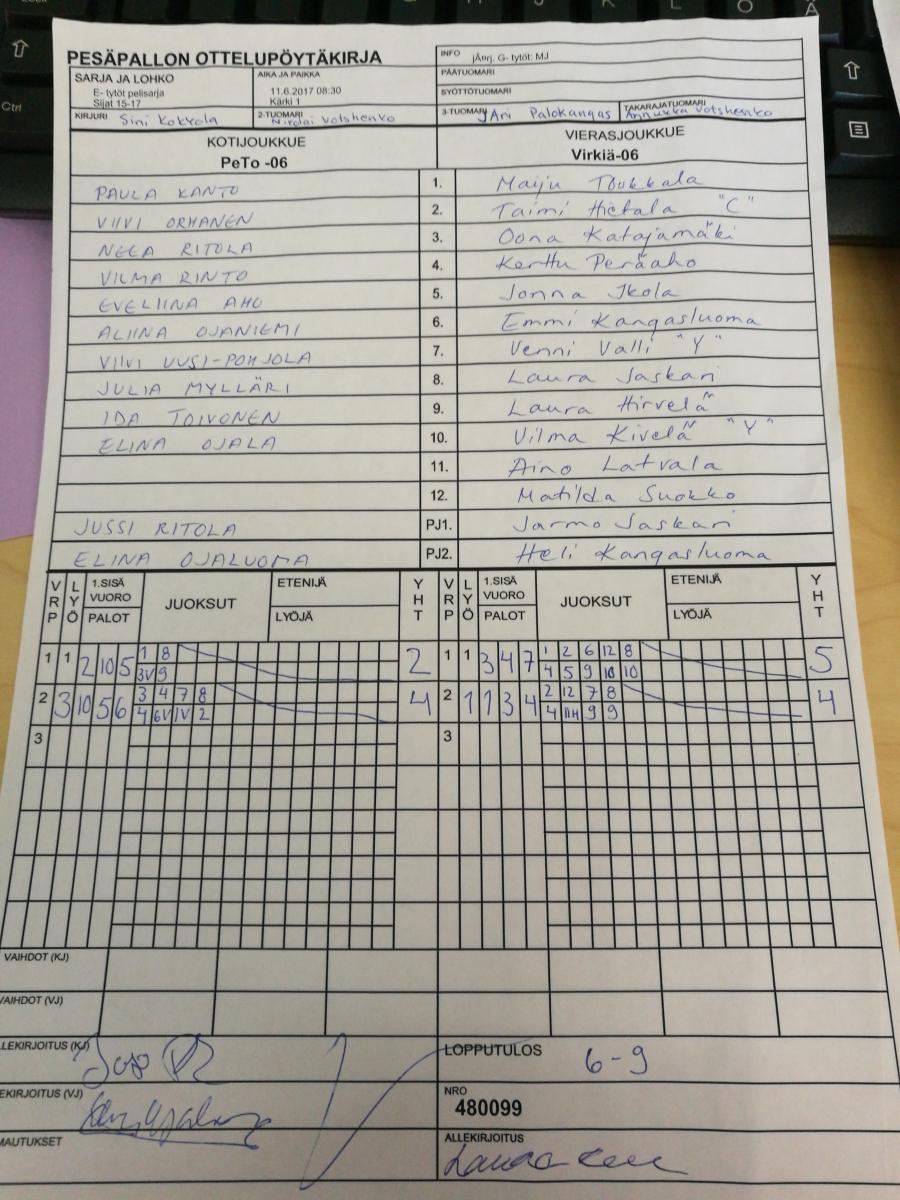 PESÄPALLON OTTELUPÖYTÄKIRJA
INFO jÄrj. G- tytöt: MJ
PÄÄTUOMARI
SYÖTTÖTUOMARI
SARJA JA LOHKO
E- tytöt pelisarja
Sijat 15-17
AIKA JA PAIKKA
11.6.2017 08:30
Kärki 1
KIRJURI Sini Kokkola
2-TUOMARI Nikolai Votshenko
3-TUOMARI Ari Palokangas
TAKARAJATUOMARI Annukka Votshenko
KOTIJOUKKUE VIERASJOUKKUE
PeTo -06 Virkiä-06
PAULA KANTO 1. Maiju Toukkala
VIIVI ORHANEN 2. Taimi Hietala "C"
NEEA RITOLA 3. Oona Katajamäki
VILMA RINTO 4. Kerttu Peräaho
EVELIINA AHO 5. Jonna Ikola
ALIINA OJANIEMI 6. Emmi Kangasluoma
VIIVI UUSI-POHJOLA 7. Venni Valli "Y"
JULIA MYLLÄRI 8. Laura Jaskari
IDA TOIVONEN 9. Laura Hirvelä
ELINA OJALA 10. Vilma Kivelä "Y"
11. Aino Latvala
12. Matilda Suokko
JUSSI RITOLA PJ1. Jarmo Jaskari
ELINA OJALUOMA PJ2. Heli Kangasluoma
VRP LYÖ 1.SISÄ VUORO PALOT JUOKSUT ETENIJÄ LYÖJÄ YHT VRP LYÖ 1.SISÄ VUORO PALOT JUOKSUT ETENIJÄ LYÖJÄ YHT
1 1 2 10 5 1 8 2 1 1 3 4 7 1 2 6 12 8 5
3V 9 4 5 9 10 10
2 3 10 5 6 3 4 7 8 4 2 1 1 3 4 2 12 7 8 4
4 6V 1V 2 4 11H 9 9
3 3
VAIHDOT (KJ)
VAIHDOT (VJ)
LLEKIRJOITUS (KJ)
LOPPUTULOS 6-9
EKIRJOITUS (VJ)
NRO
480099
MAUTUKSET
ALLEKIRJOITUS
Ctrl